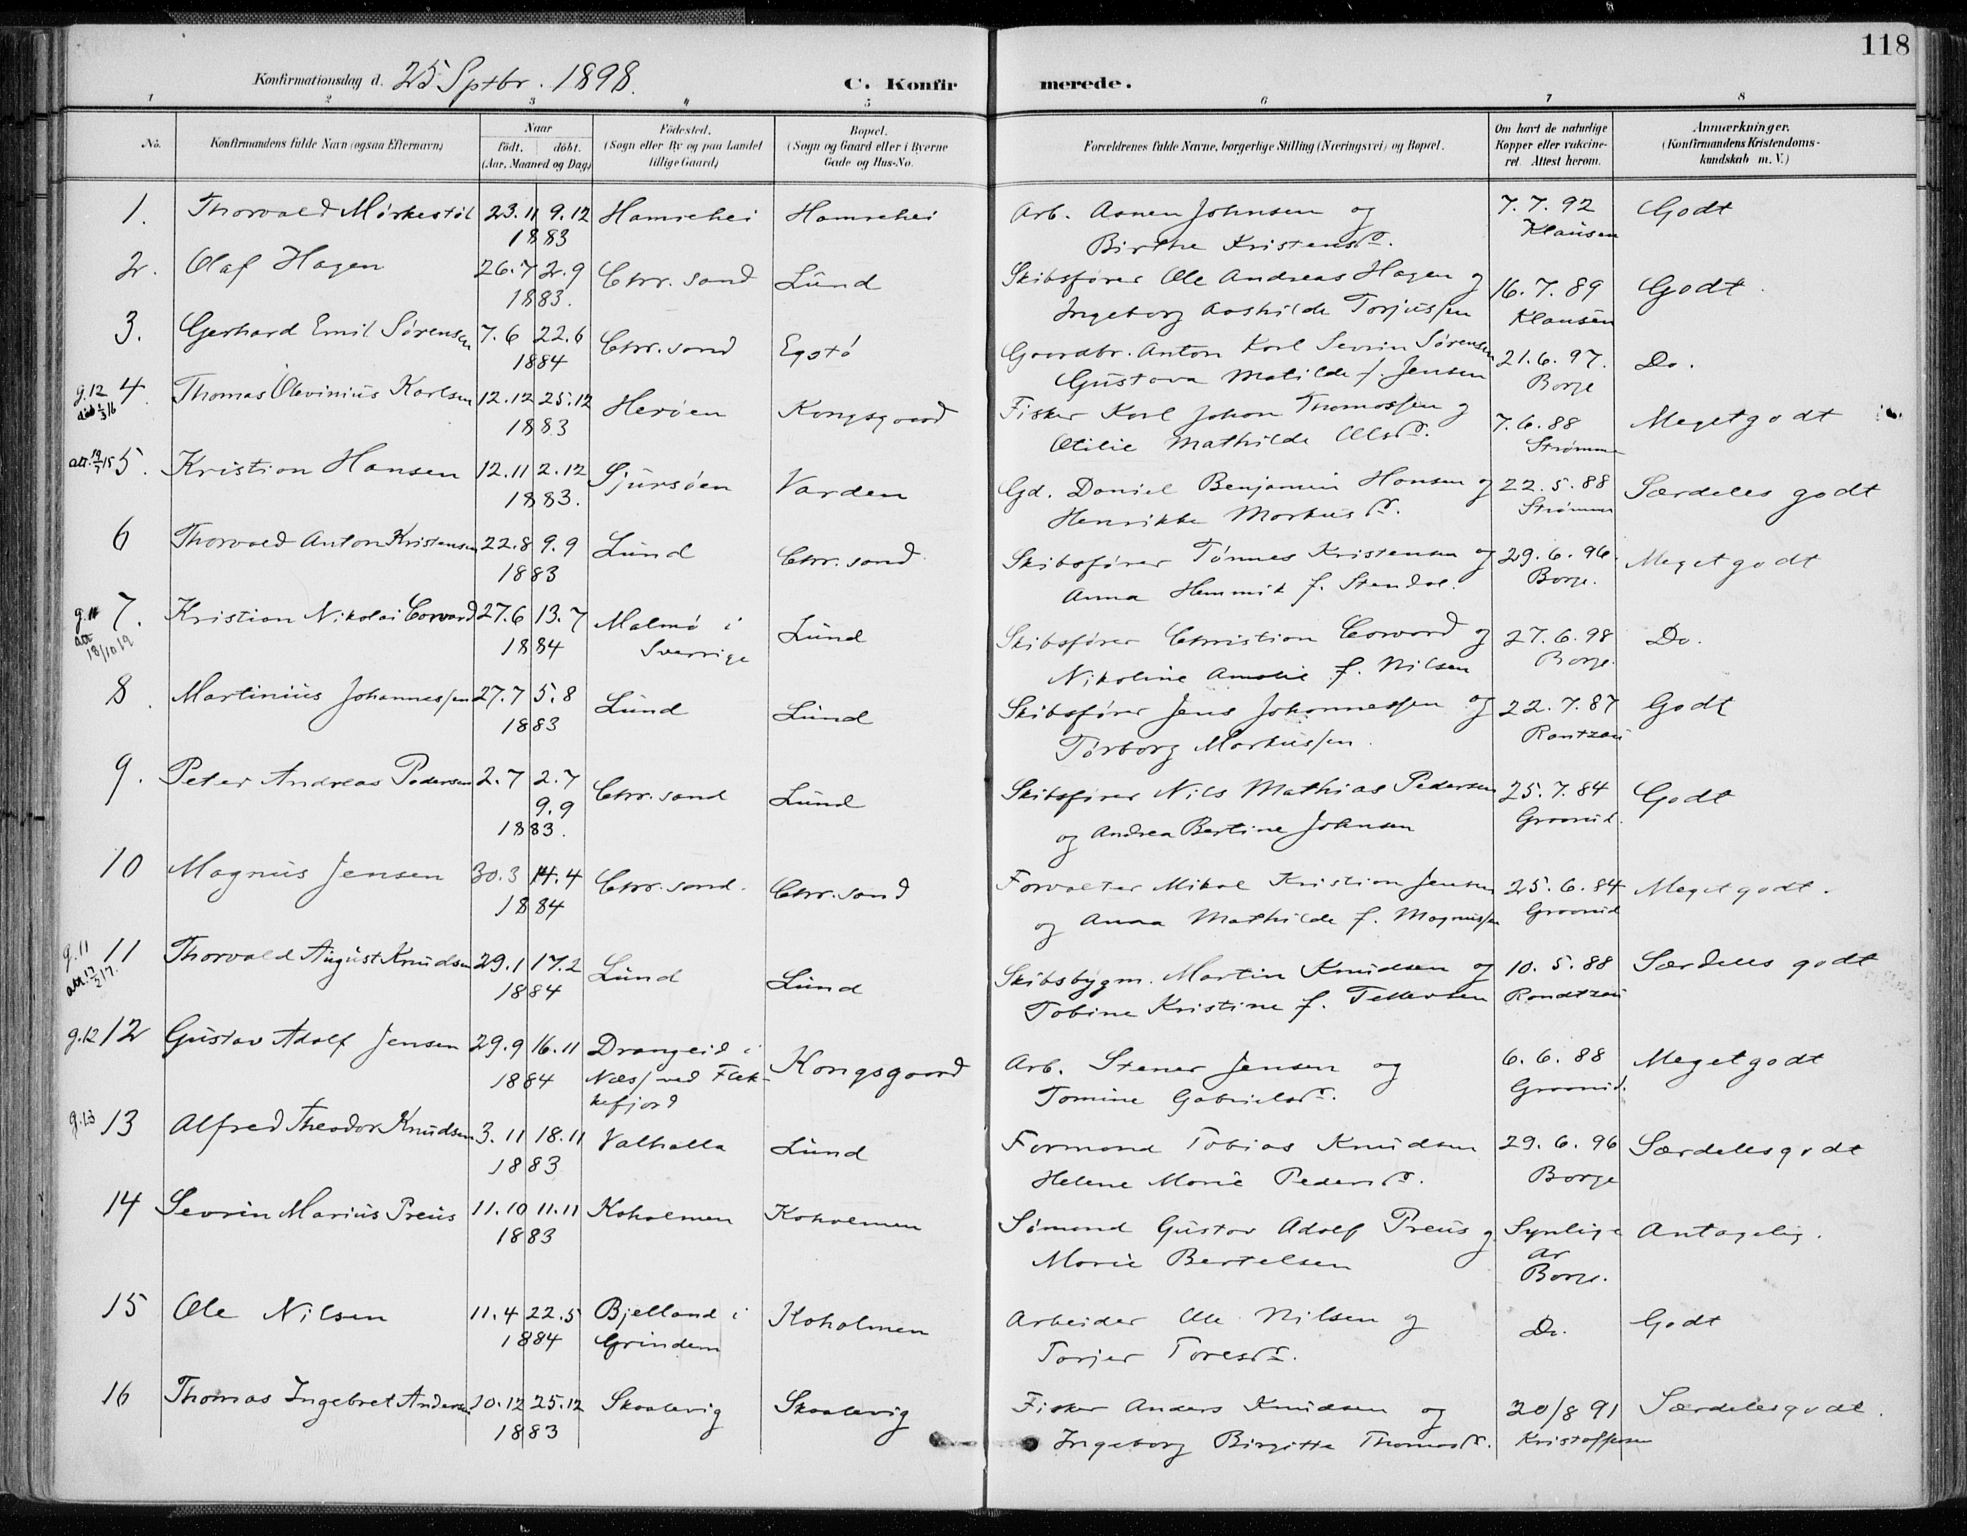 118
Konfirmationsdag d. 25 Sptbr. 1898.
C. Konfir merede.
1 2 3 4 5 6 7 8
No. Konfirmandens fulde Navn (ogsaa Efternavn) Naar født. døbt. (Aar, Maaned og Dag) Fødested. (Sogn eller By og paa Landet tillige Gaard) Bopæl. (Sogn og Gaard eller i Byerne Gade og Hus-No. Forældrenes fulde Navne, borgerlige Stilling (Næringsvei) og Bopæl. Om havt de naturlige Kopper eller vakcineret. Attest herom. Anmærkninger. (Konfirmandens Kristendomskundskab m. V.)
1. Thorvald Mørkestøl 23.11 9.12 Hamrehei Hamrehei Arb. Aanen Johnsen og 7.7.92 Godt
1883 Birthe Kristensdr. Klausen
2. Olaf Hagen 26.7 2.9 Chr.sand Lund Skibsfører Ole Andreas Hagen og 16.7.89 Godt.
1883. Ingeborg Aashilde Torjussen Klausen
3. Gerhard Emil Sørensen 7.6 22.6 Chr.sand Egstø Gaardbr. Anton Karl Sevrin Sørensen 21.6.97. Do.
1884 Gustava Matilde f. Jensen Borge
g.12 4. Thomas Olevinius Karlsen 12.12 25.12 Herøen Kongsgaard Fisker Karl Johan Thomassen og 7.6.88 Meget godt
1883 Otilie Mathilde Olsdr. Strømme
5. Kristian Hansen 12.11 2.12 Sjursøen Varden Gd. Daniel Benjamin Hansen og 22.5.88 Særdeles godt
1883. Henrikke Markusdr. Strømme
6 Thorvald Anton Kristensen 22.8 9.9 Lund Chr.sand Skibsfører Tønnes Kristensen og 29.6.96. Meget godt
1883 Anna Hemmik f. Stendal. Borge.
g.11 7. Kristian Nikolai Corvard 27.6 13.7 Malmø i Lund Skibsfører Christian Corvard og 27.6.98 Do.
att 18/10 19 1884 Sverrige Nikoline Amalie f. Nilsen Borge.
8. Martinius Johannessen 27.7 5.8 Lund Lund Skibsfører Jens Johannessen og 22.7.87 Godt
1883 Tørborg Markussen. Rantzau
9. Peter Andreas Pedersen 2.7 2.7 Chr.sand Lund Skibsfører Nils Mathias Pedersen 25.7.84 Godt
9.9
1883. og Andrea Bertine Johnsen
10 Magnus Jensen 30.3 14.4 Chr.sand. Chr.sand Forvalter Mikal Kristian Jensen 25.6.84 Meget godt.
1884 og Anna Mathilde f. Magnussen
g.11 11 Thorvald August Knudsen 29.1 17.2 Lund Lund Skibsbygm. Martin Knudsen og 10.5.88 Særdeles godt
1884 Tobine Kristine f. Tellevsen Randtzau
g.12 12 Gustav Adolf Jensen 29.9 16.11 Drangeid i Kongsgaard Arb. Stener Jensen og 6.6.88 Meget godt
1884 Næs/ved Flekkefjord Tomine Gabrielsdr.
g.13 13 Alfred Theodor Knudsen 3.11 18.11 Valhalla Lund Formand Tobias Knudsen 29.6.96 Særdeles godt
1883 Helene Marie Pedersdr. Borge
14 Sevrin Marius Preus 11.10 11.11 Koholmen Koholmen Sømand Gustav Adolf Preus og Synlige Antagelig.
1883 Marie Bertelsen ar
Borge.
15 Ole Nilsen 11.4 22.5 Bjelland i Koholmen Arbeider Ole Nilsen og Do. Godt
1884 Grindem Torjer Toresdr.
16 Thomas Ingebret Andersen 10.12 25.12 Skaalevig Skaalevig Fisker Anders Knudsen og 20/8 91 Særdeles godt.
1883 Ingeborg Birgitte Thomasdr. Kristoffersen